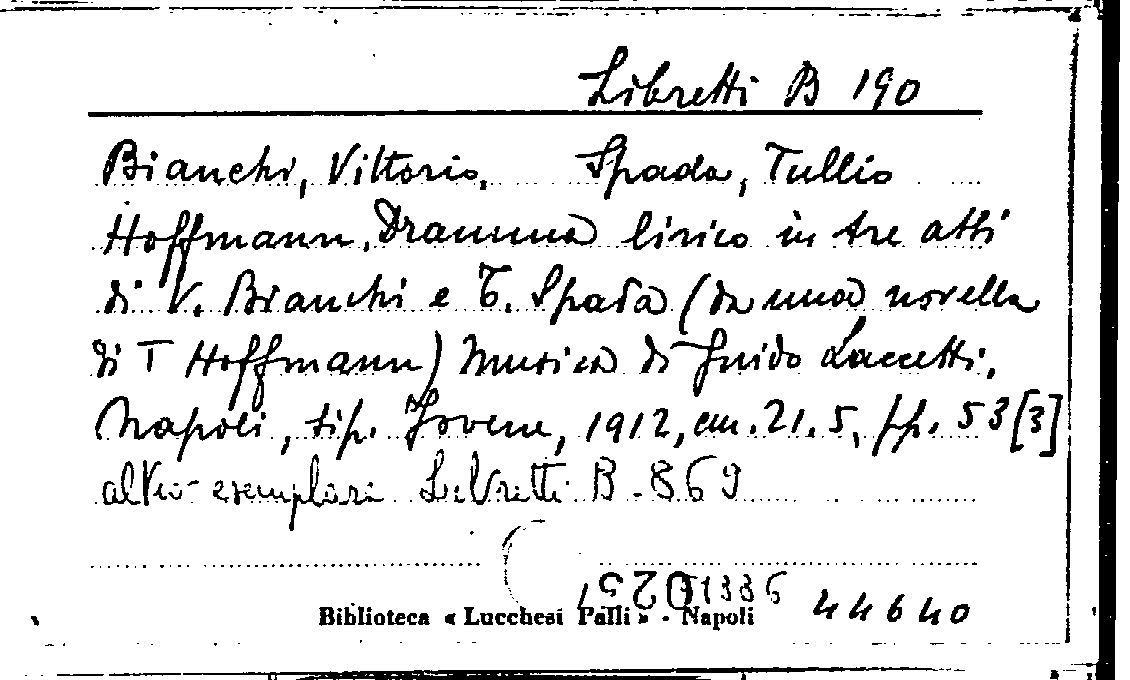 Libretti B 190
Bianchi, Vittorio, Spada, Tullio
Hoffmann, Dramma lirico in tre atti
di V. Bianchi e T. Spada (da una novella
di T Hoffmann) Musica di Guido Laccetti,
Napoli, tip. Jovene, 1912, cm. 21.5, pp. 53[3]
altro esemplare Libretti B - 869
44640
Biblioteca « Lucchesi Palli » - Napoli